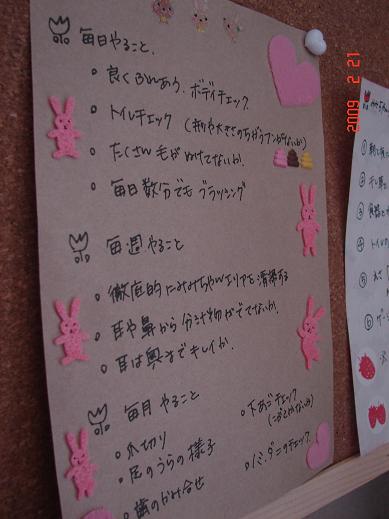 毎日やること、
・良くふれあう、ボディチェック
・トイレチェック (形や大きさのちがうフンがないか)
・たくさん毛がぬけてないか、
・毎日数分でもブラッシング
毎週やること
・徹底的にみみちゃんエリアを清掃する
・耳や鼻から分泌物がでてないか、
・耳は奥までキレイか、
毎月やること
・爪切り
・足のうらの様子
・歯のかみ合せ
・下あごチェック
・ノミ、ダニのチェック
2009 2 21
①
②
③
④ トイレ
⑤
⑥